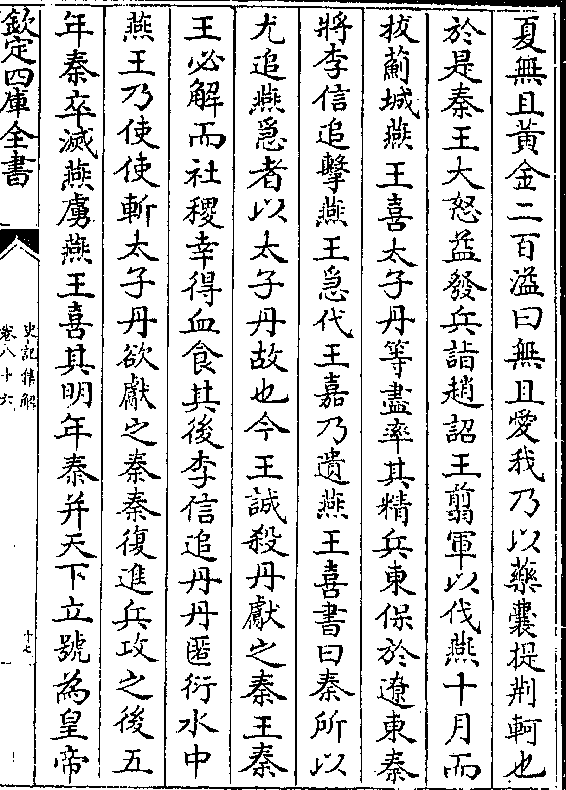 夏無且黃金二百溢曰無且愛我乃以藥囊提荆軻也
於是秦王大怒益發兵詣趙詔王翦軍以伐燕十月而
拔薊城燕王喜太子丹等盡率其精兵東保於遼東秦
將李信追擊燕王急代王嘉乃遺燕王喜書曰秦所以
尤追燕急者以太子丹故也今王誠殺丹獻之秦王秦
王必解而社稷幸得血食其後李信追丹丹匿衍水中
燕王乃使使斬太子丹欲獻之秦秦復進兵攻之後五
年秦卒滅燕虜燕王喜其明年秦并天下立號為皇帝
欽定四庫全書
史記集解
卷八十六
十七